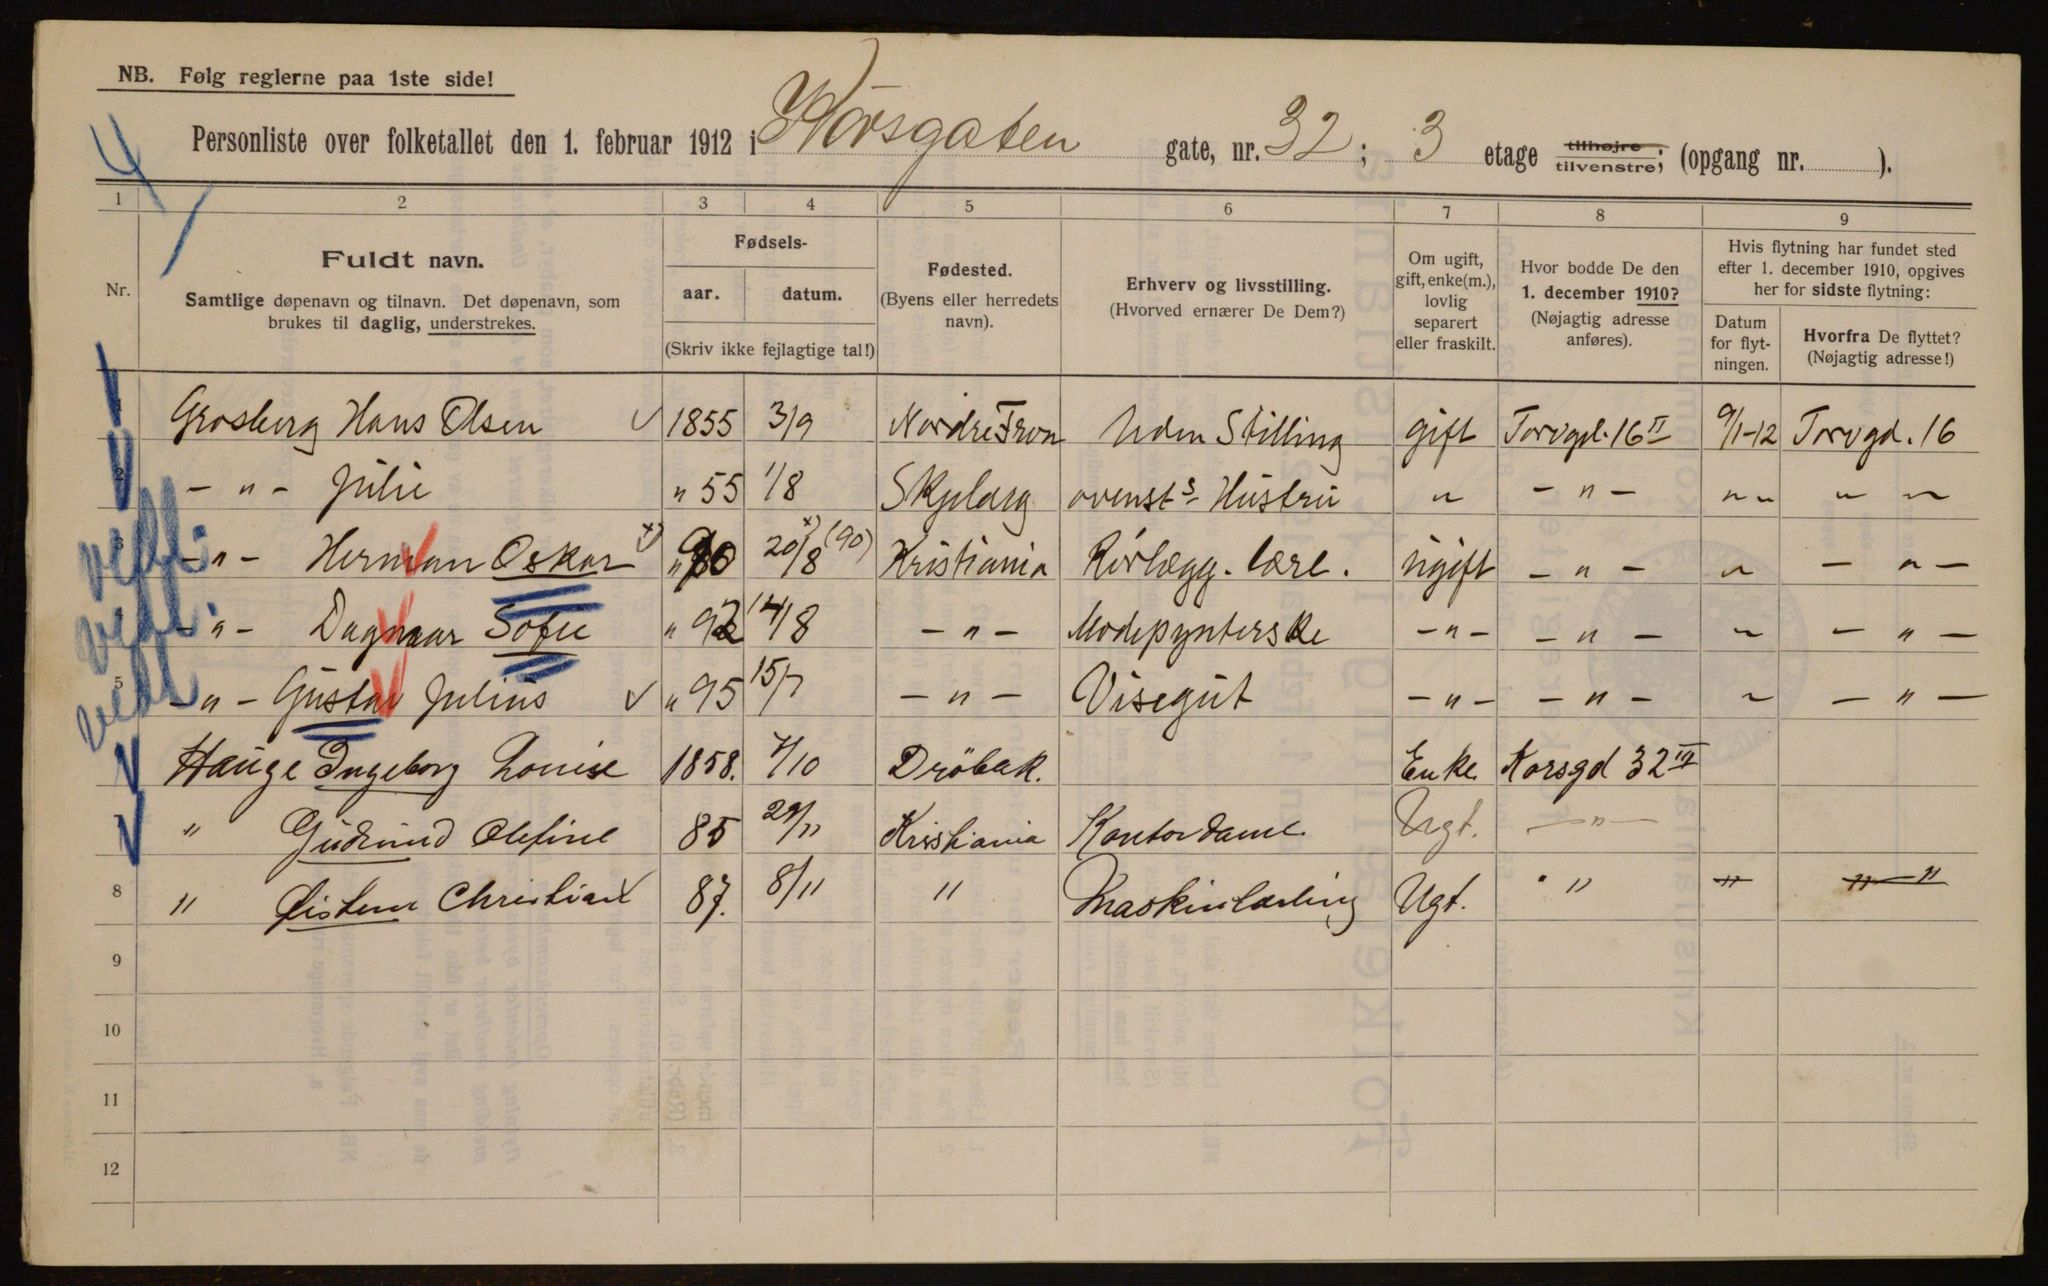 NB. Følg reglerne paa 1ste side!
Personliste over folketallet den 1. februar 1912 i Korsgaten gate, nr. 32; 3 etage tilhøjre tilvenstre; (opgang nr. ).
1 2 3 4 5 6 7 8 9
Nr. Fuldt navn. Samtlige døpenavn og tilnavn. Det døpenavn, som brukes til daglig, understrekes.
Fødsels- aar. datum. (Skriv ikke fejlagtige tal!)
Fødested. (Byens eller herredets navn).
Erhverv og livsstilling. (Hvorved ernærer De Dem?)
Om ugift, gift, enke(m.), lovlig separert eller fraskilt.
Hvor bodde De den 1. december 1910? (Nøjagtig adresse anføres).
Hvis flytning har fundet sted efter 1. december 1910, opgives her for sidste flytning:
Datum for flyt-ningen. Hvorfra De flyttet? (Nøjagtig adresse!)
Grosberg Hans Olsen 1855 3/9 Nordre Fron Uden Stilling gift Torvgd. 16 II 9/1-12 Torvgd. 16
2 - " - Julie " 55 1/8 ovenst s Hustru " - " - " " " "
3 - " - Herman Oskar x) " 90 20/8 x) (90) Kristiania Rørlægg. lærl. ugift - " - " - " -
4 - " - Dagmar Sofie " 92 14/8 - " - Modepynterske - " - - " - " - " -
5 - " - Gustav Julius " 95 15/7 - " - Visegut - " - - " - " - " -
Hauge Ingeborg Louise 1858. 7/10 Drøbak. Enke Korsgd 32 III
" Gudrund Olefine 85 29/11 Kristiania Kontordame Ugt. - " -
8 " Øistein Christian 87. 8/11 " Maskinlærling Ugt. " " " "
9
10
11
12